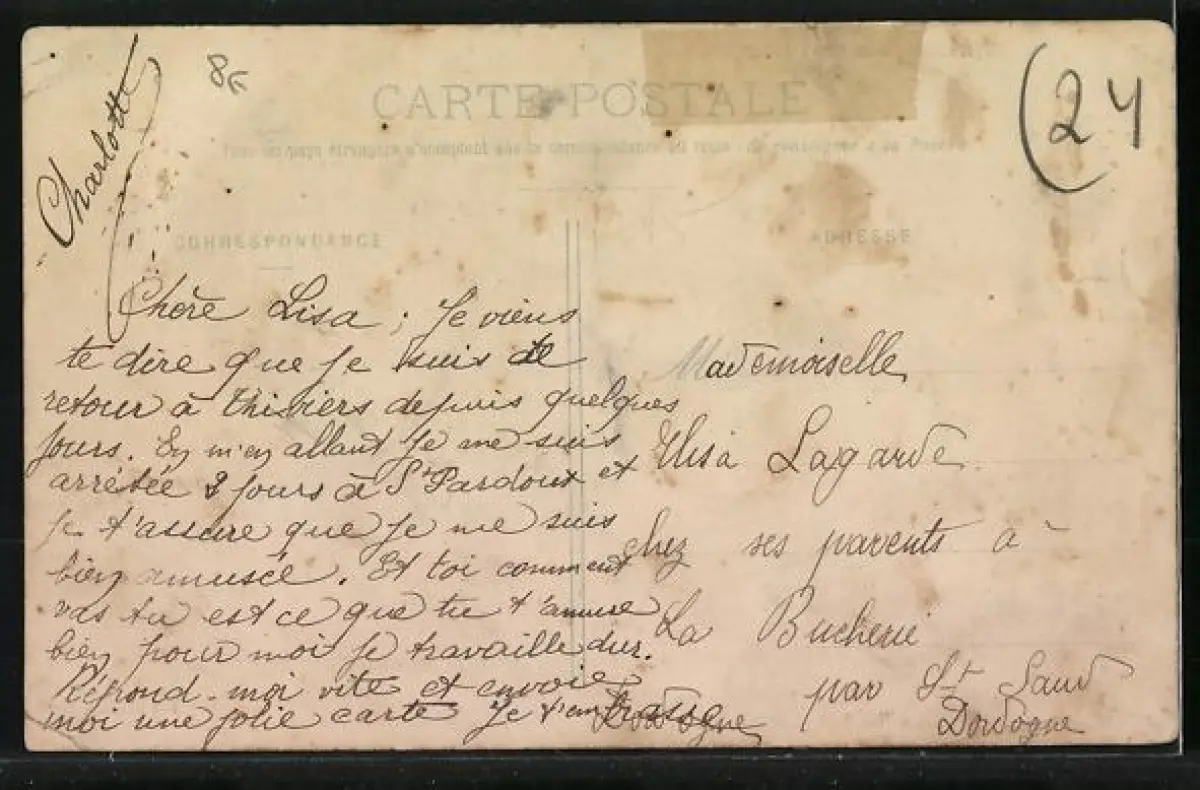 Charlotte
8€
(24
CARTE POSTALE
CORRESPONDANCE
ADRESSE
Chère Lisa ; Je viens
te dire que je suis de
retour à Thiviers depuis quelques
jours. En m'en allant je me suis
arrêtée 8 jours à St Pardoux et
je t'assure que je me suis
bien amusée. Et toi comment
vas tu est ce que tu t'amuse
bien pour moi je travaille dur.
Répond-moi vite et envoie
moi une jolie carte Je t'embrasse
Mademoiselle
Elisa Lagarde
chez ses parents à
La Bucherie
par St Saud
Dordogne
Dordogne